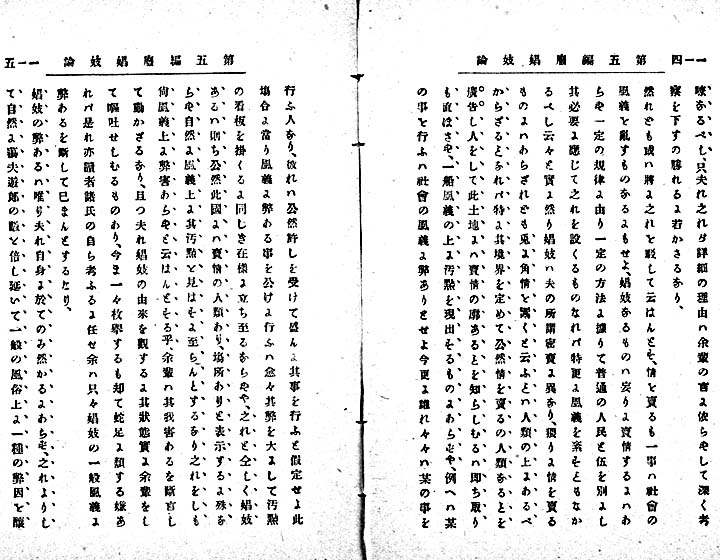 一一四 第五編廢娼妓論
喙あるべし、只夫れ之れが詳細の理由ハ余輩の言よ依らぞして深く考
察を下すの勝れるよ若かさるあり、
然れとも或ハ將よ之れと駁して云はんとそ、情と賣るも一事ハ社會の
風義と亂すものあるよもせよ、娼妓あるものハ妄りよ賣情するよハあ
らぞ一定の規律よ由り一定の方法よ據りて普通の人民と伍を別よし
其必要よ應じて之れを設くるものなれバ特更よ風義を紊そともなか
るべし云々と實よ然り娼妓ハ夫の所謂密賣よ異あり、猥りよ情を賣る
ものよハあらざれども兎よ角情と鬻くと云ふとハ人類の上よあるべ
からざるとあれバ特よ其境界を定めて公然情を賣るの人類あるとを
廣告し人をして此土地よハ賣情の廓あるとを知らしむるハ即ち取り
も直ほさぞ、一般風義の上よ汚點を現出そるものよあらぞや、例へハ某
の事と行ふハ社會の風義よ弊ありとせよ今更よ誰れ々々ハ某の事を
第五編廢娼妓論 一一五
行ふ人あり、彼れハ公然許しを受けて盛んよ其事を行ふと假定せよ此
塲合よ當り風義よ弊ある事を公けよ行ふハ愈々其弊を大よして汚點
の看板を掛くるよ同じき在樣よ立ち至るあらぞや、之れと仝しく娼妓
あるハ則ち公然此國よハ賣情の人類あり、塲所ありと表示するよ殊あ
らぞ自然よ風義上よ其汚點と見はそよ至らんとするあり之れをしも
尙風義上よ弊害あらぞと云はんとそる乎、余輩ハ其我害あるを斷言し
て動かざるあり、且つ夫れ娼妓の由來を觀するよ其狀態實よ余輩をし
て嘔吐せしむるものあり、今ま一々枚擧するも却て蛇足よ類する嫌あ
れバ是れ亦讀者諸氏の自ら考ふるよ任せ余ハ只々娼妓の一般風義よ
弊あるを斷して已まんとするとり、
娼妓の弊あるハ唯り夫れ自身よ於てのみ然かるよあらぞ、之れよりし
て自然よ蕩夫遊郎の數と倍し延いて一般の風俗上よ一種の弊因と釀